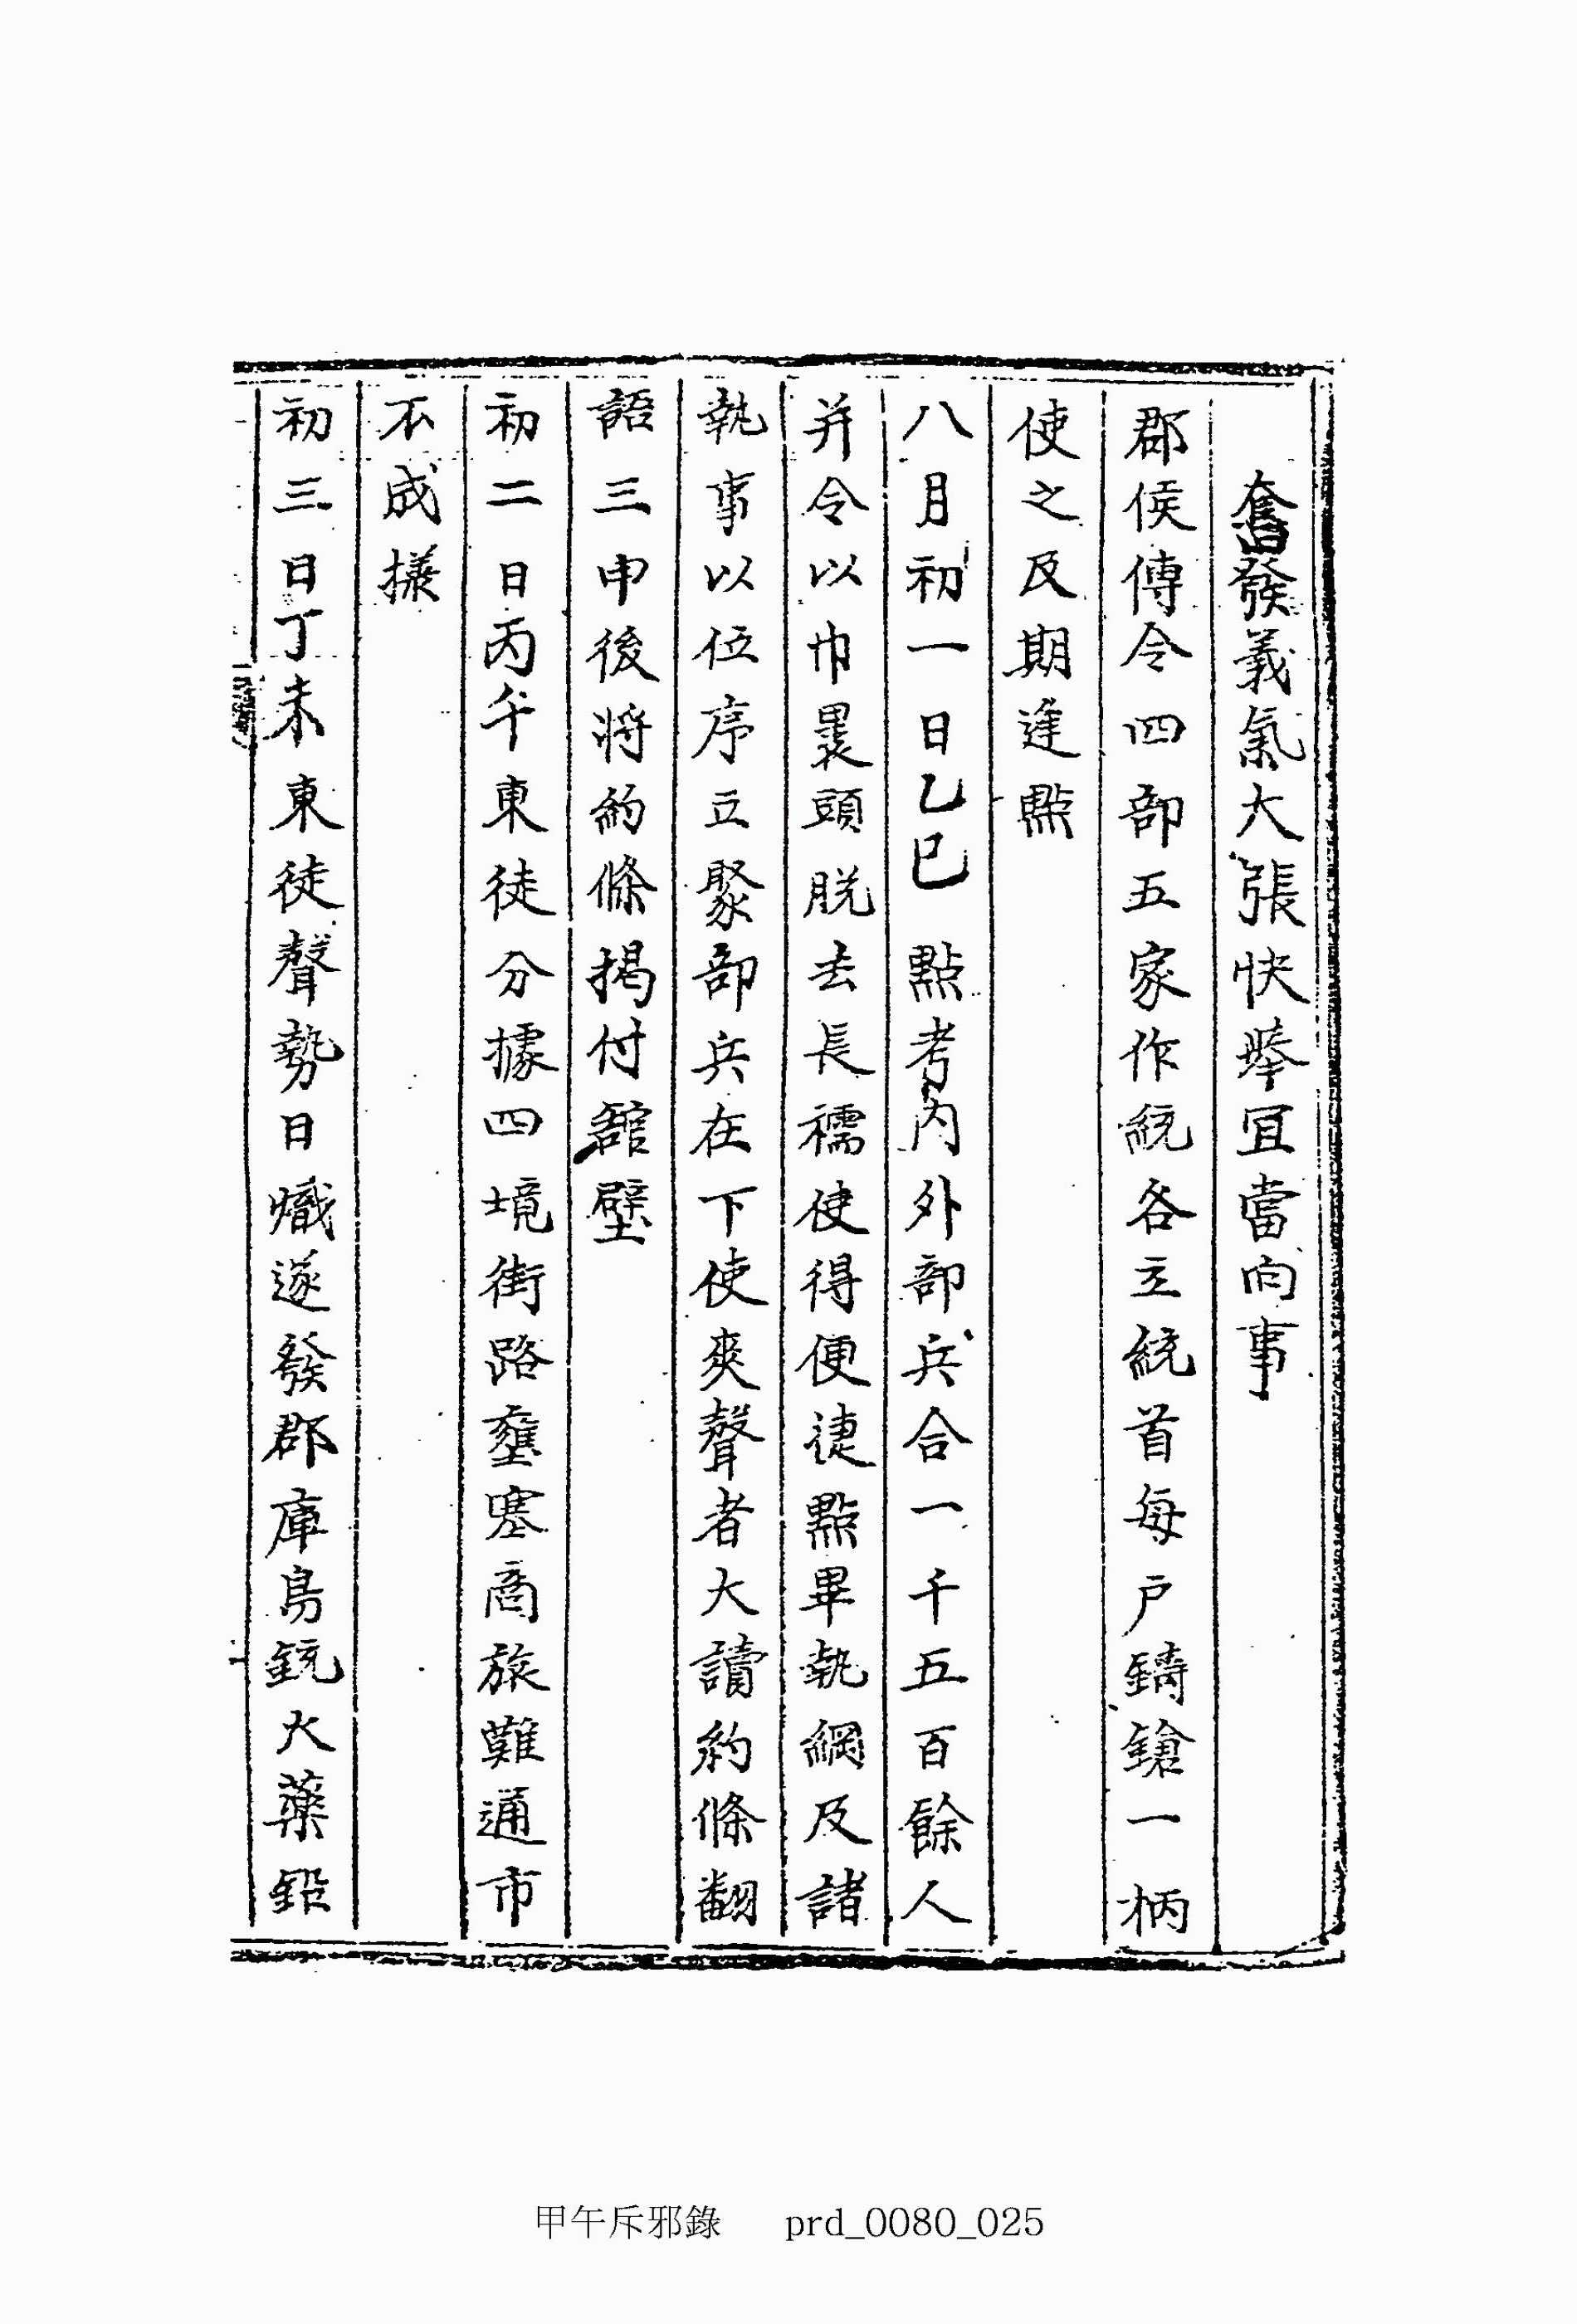 奮發義氣大張快擧宜當向事
郡侯傳令四部五家作統各立統首每戶鑄鎗一柄
使之及期逢點
八月初一日乙巳點考內外部兵合一千五百餘人
并令以巾裹頭脫去長襦使得便捷點畢執綱及諸
執事以位序立聚部兵在下使爽聲者大讀約條翻
語三申後將約條揭付舘壁
初二日丙午東徒分據四境街路壅塞商旅難通市
不成㨾
初三日丁未東徒聲勢日熾遂發郡庫鳥銃大藥鉛
甲午斥邪錄 prd_0080_025